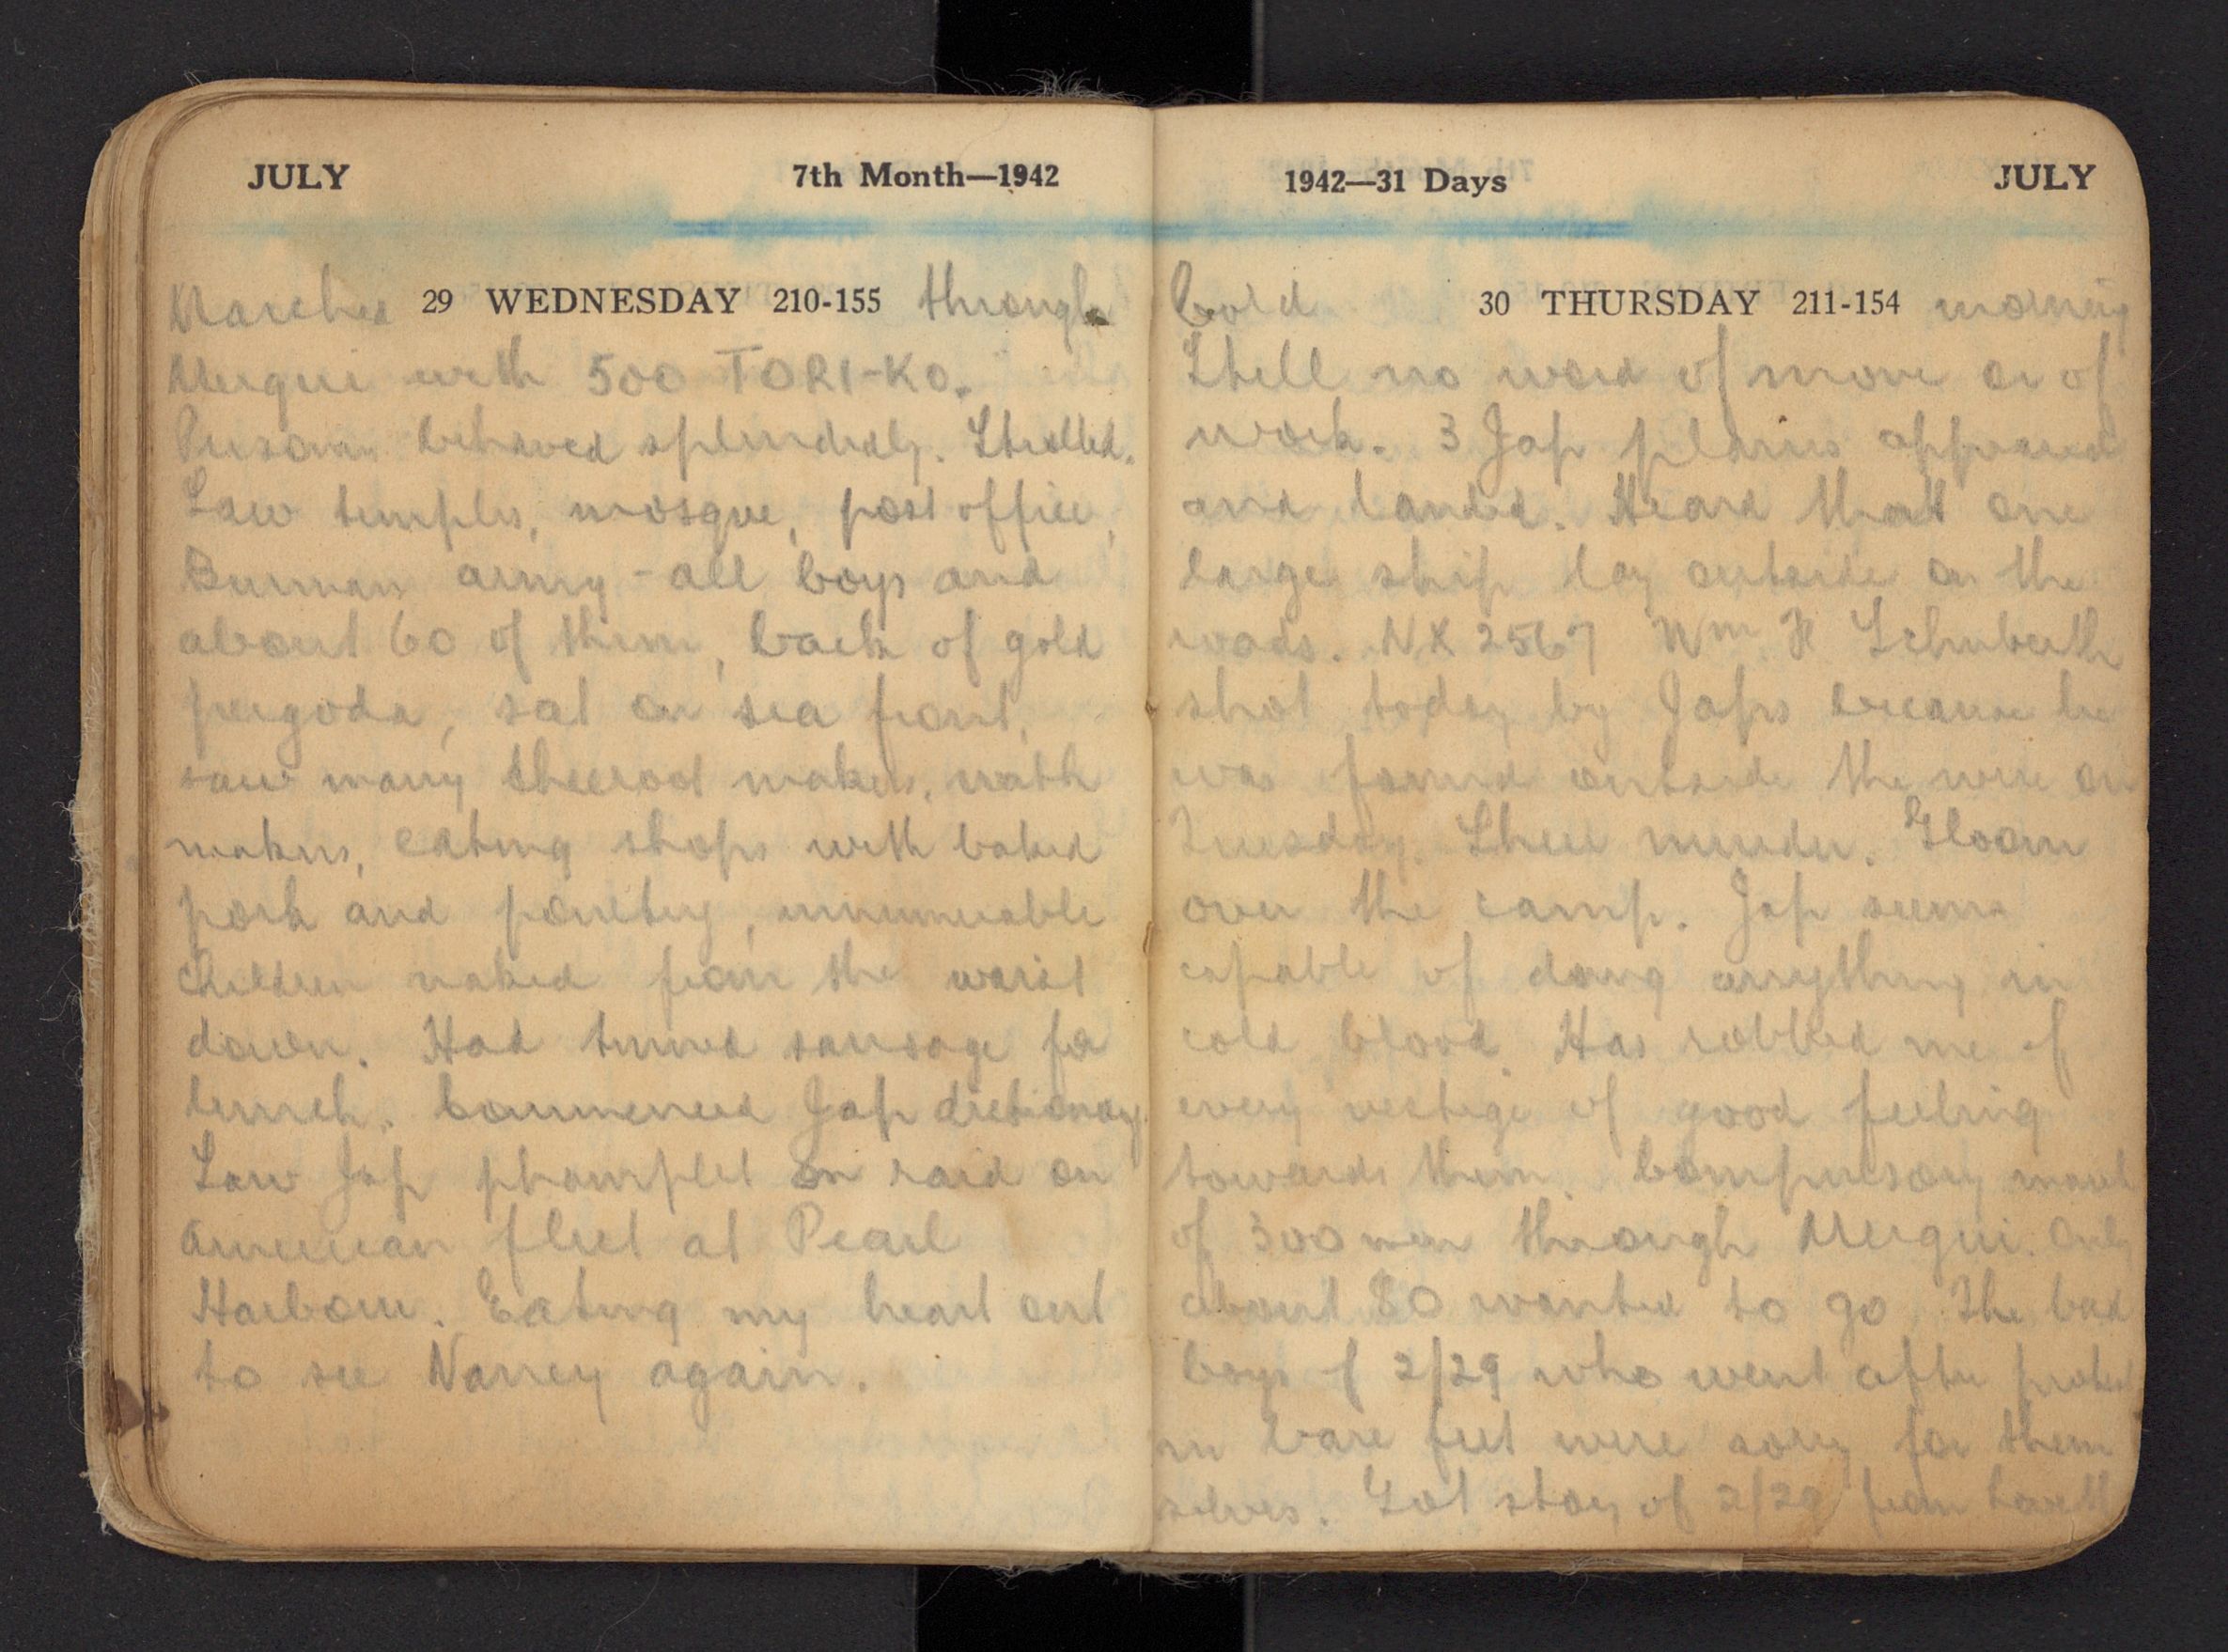 JULY 7th Month—1942
Marched 29 WEDNESDAY 210-155 through
Mergui with 500 TORI-KO.
Prisoners behaved splendidly. Strolled.
Saw temples, mosque, post office,
Burman army - all boys and
about 60 of them, back of gold
pergoda, sat on sea front,
saw many cheeroot makers,
makers, eating shops with baked
pork and poultry, innumerable
children naked from the waist
down. Had tinned sausage for
lunch. Commenced Jap dictionary.
Saw Jap phamplet on raid on
American fleet at Pearl
Harbour. Eating my heart out
to see Nancy again.
1942—31 Days JULY
Cold 30 THURSDAY 211-154 morning
Still no word of move or of
work. 3 Jap planes appeared
and landed. Heard that one
large ship lay outside in the
roads. NX 2567 Wm H Schuberth
shot today by Japs because he
was found outside the wire on
Tuesday. Sheer murder. Gloom
over the camp. Jap seems
capable of doing anything in
cold blood. Has robbed me of
every vestige of good feeling
towards them. Compulsory march
of 300 men through Mergui. Only
about 80 wanted to go. The bad
boys of 2/29 who went after protest
in bare feet were sorry for them
selves. Got story of 2/29 from